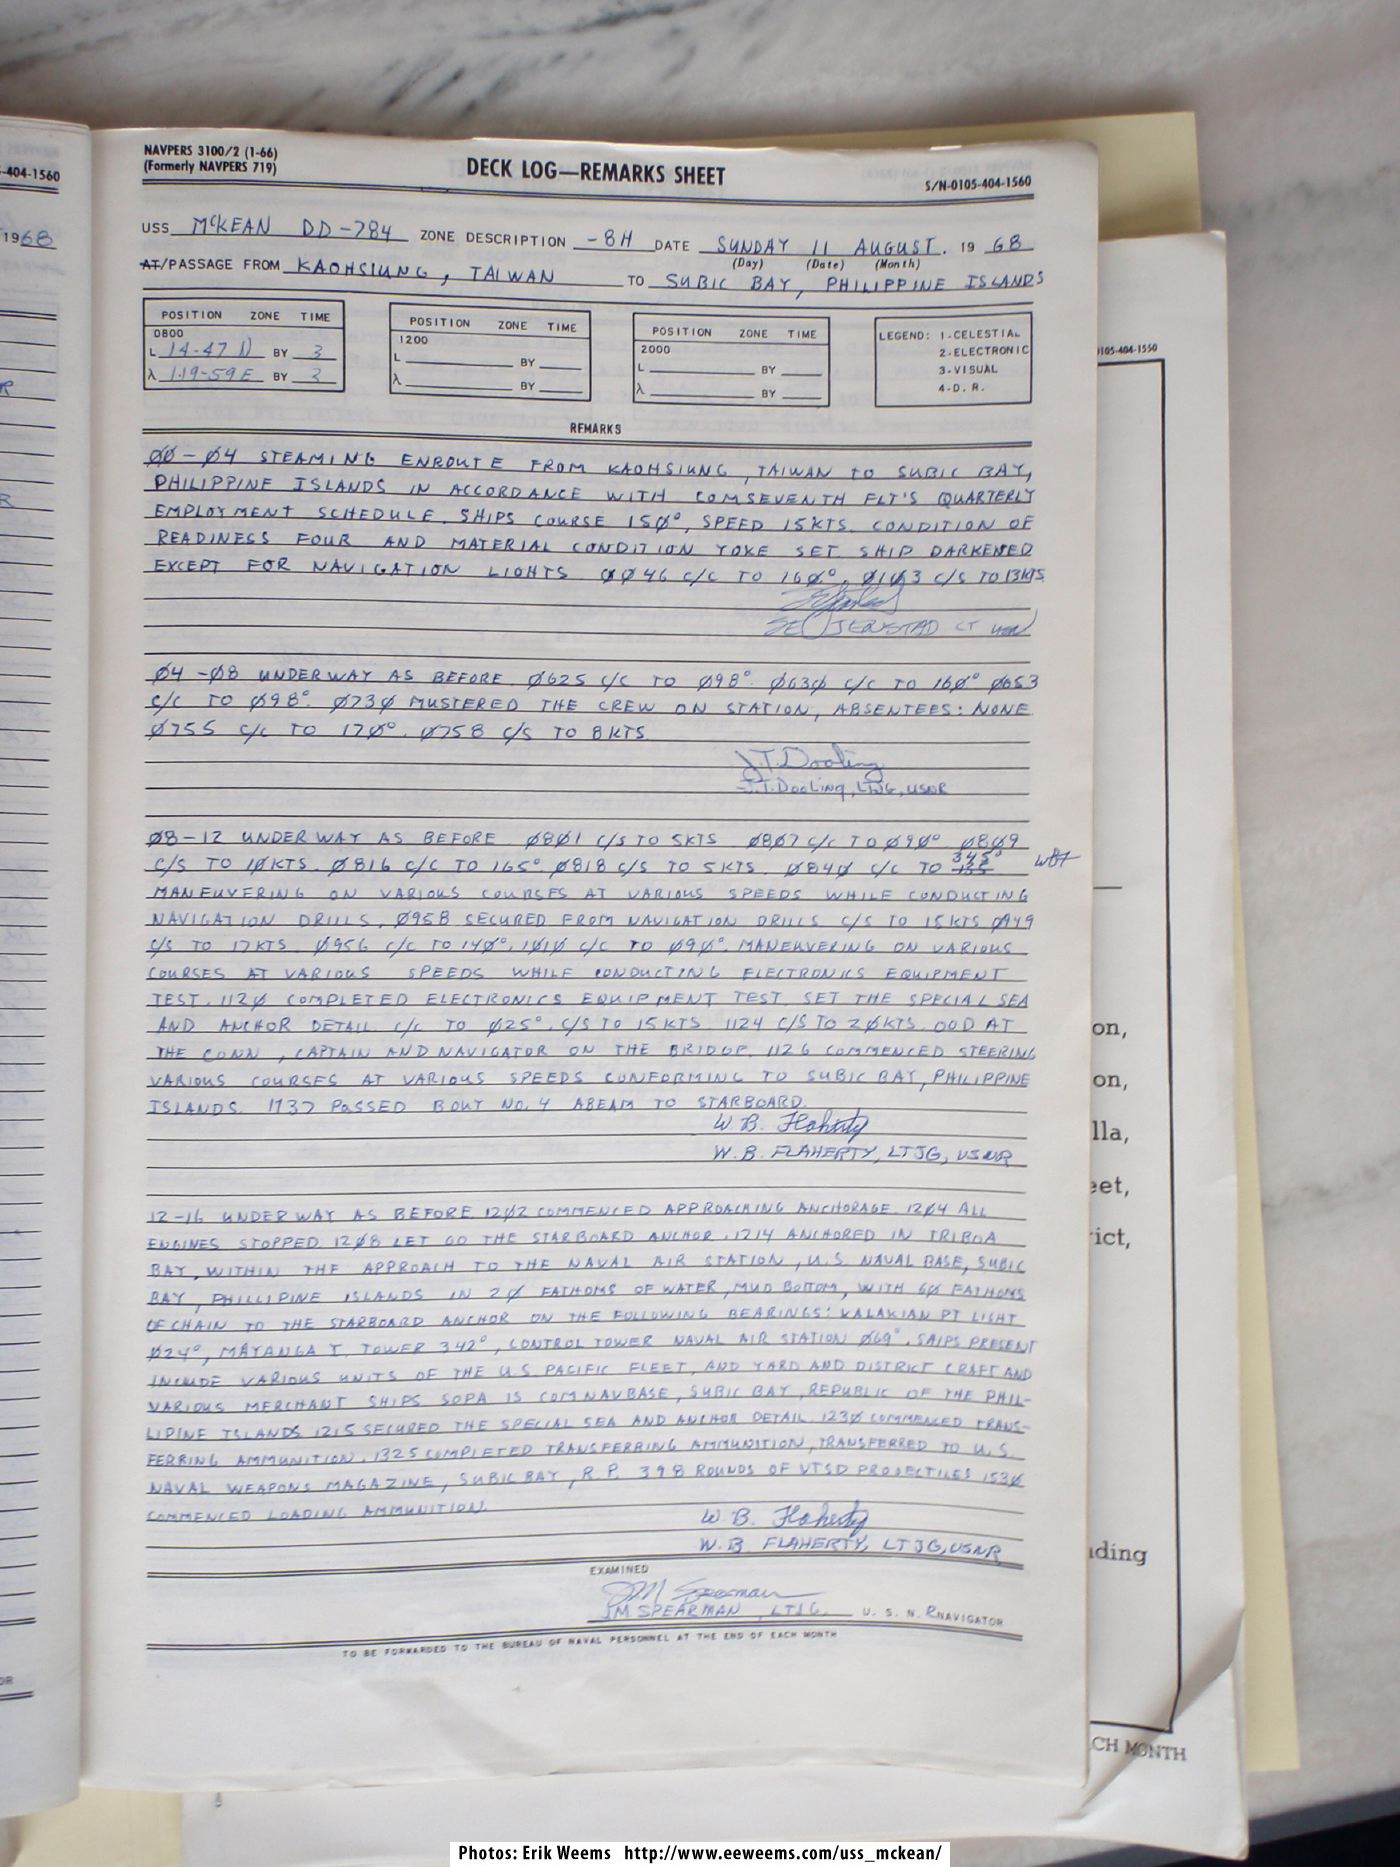 NAVPERS 3100/2 (1-66)
(Formerly NAVPERS 719)
DECK LOG—REMARKS SHEET
S/N-0105-404-1560
-404-1560
1968
USS McKEAN DD-784 ZONE DESCRIPTION -8H DATE SUNDAY 11 AUGUST. 19 68
(Day) (Date) (Month)
AT/PASSAGE FROM KAOHSIUNG, TAIWAN TO SUBIC BAY, PHILIPPINE ISLANDS
POSITION ZONE TIME
0800
L 14-47 N BY 3
λ 119-59E BY 3
POSITION ZONE TIME
1200
L BY
λ BY
POSITION ZONE TIME
2000
L BY
λ BY
LEGEND: 1-CELESTIAL
2-ELECTRONIC
3-VISUAL
4-D. R.
REMARKS
00-04 STEAMING ENROUTE FROM KAOHSIUNG, TAIWAN TO SUBIC BAY,
PHILIPPINE ISLANDS IN ACCORDANCE WITH COMSEVENTH FLT'S QUARTERLY
EMPLOYMENT SCHEDULE. SHIPS COURSE 150°, SPEED 15KTS. CONDITION OF
READINESS FOUR AND MATERIAL CONDITION YOKE SET. SHIP DARKENED
EXCEPT FOR NAVIGATION LIGHTS. 0046 C/C TO 160°. 0103 C/S TO 13KTS
LT USN
04-08 UNDERWAY AS BEFORE. 0625 C/C TO 098°. 0630 C/C TO 160° 0653
C/C TO 098°. 0730 MUSTERED THE CREW ON STATION, ABSENTEES: NONE.
0755 C/C TO 170°. 0758 C/S TO 8KTS
J.T. Dooling
J.T. Dooling, LTJG, USNR
08-12 UNDERWAY AS BEFORE. 0801 C/S TO 5KTS. 0807 C/C TO 090°. 0809
C/S TO 10KTS. 0816 C/C TO 165°. 0818 C/S TO 5KTS. 0840 C/C TO 345° WBF
MANEUVERING ON VARIOUS COURSES AT VARIOUS SPEEDS WHILE CONDUCTING
NAVIGATION DRILLS. 0958 SECURED FROM NAVIGATION DRILLS C/S TO 15KTS 0949
C/S TO 17KTS. 0956 C/C TO 140°. 1010 C/C TO 090°. MANEUVERING ON VARIOUS
COURSES AT VARIOUS SPEEDS WHILE CONDUCTING ELECTRONICS EQUIPMENT
TEST. 1120 COMPLETED ELECTRONICS EQUIPMENT TEST. SET THE SPECIAL SEA
AND ANCHOR DETAIL C/C TO 025°. C/S TO 15KTS. 1124 C/S TO 20KTS. OOD AT
THE CONN, CAPTAIN AND NAVIGATOR ON THE BRIDGE. 1126 COMMENCED STEERING
VARIOUS COURSES AT VARIOUS SPEEDS CONFORMING TO SUBIC BAY, PHILIPPINE
ISLANDS. 1737 PASSED BOUY NO. 4 ABEAM TO STARBOARD.
W B. Flaherty
W. B. FLAHERTY, LTJG, USNR
12-16 UNDERWAY AS BEFORE. 1202 COMMENCED APPROACHING ANCHORAGE. 1204 ALL
ENGINES STOPPED. 1208 LET GO THE STARBOARD ANCHOR. 1214 ANCHORED IN TRIBOA
BAY, WITHIN THE APPROACH TO THE NAVAL AIR STATION, U.S. NAVAL BASE, SUBIC
BAY, PHILLIPINE ISLANDS IN 20 FATHOMS OF WATER, MUD BOTTOM, WITH 60 FATHOMS
OF CHAIN TO THE STARBOARD ANCHOR ON THE FOLLOWING BEARINGS: KALAKIAN PT LIGHT
024°, MAYANGA T. TOWER 342°, CONTROL TOWER NAVAL AIR STATION 069°. SHIPS PRESENT
INCLUDE VARIOUS UNITS OF THE U.S. PACIFIC FLEET, AND YARD AND DISTRICT CRAFT AND
VARIOUS MERCHANT SHIPS. SOPA IS COMNAVBASE, SUBIC BAY, REPUBLIC OF THE PHIL-
LIPINE ISLANDS. 1215 SECURED THE SPECIAL SEA AND ANCHOR DETAIL. 1230 COMMENCED TRANS-
FERRING AMMUNITION. 1325 COMPLETED TRANSFERRING AMMUNITION, TRANSFERRED TO U.S.
NAVAL WEAPONS MAGAZINE, SUBIC BAY, R.P. 398 ROUNDS OF VTSD PROJECTILES 1530
COMMENCED LOADING AMMUNITION.
W. B. Flaherty
W. B. FLAHERTY, LTJG, USNR
EXAMINED
JM Spearman
JM SPEARMAN, LTJG, U. S. N. R NAVIGATOR
TO BE FORWARDED TO THE BUREAU OF NAVAL PERSONNEL AT THE END OF EACH MONTH
0105-404-1550
on,
on,
lla,
eet,
ict,
ding
CH MONTH
Photos: Erik Weems http://www.eeweems.com/uss_mckean/